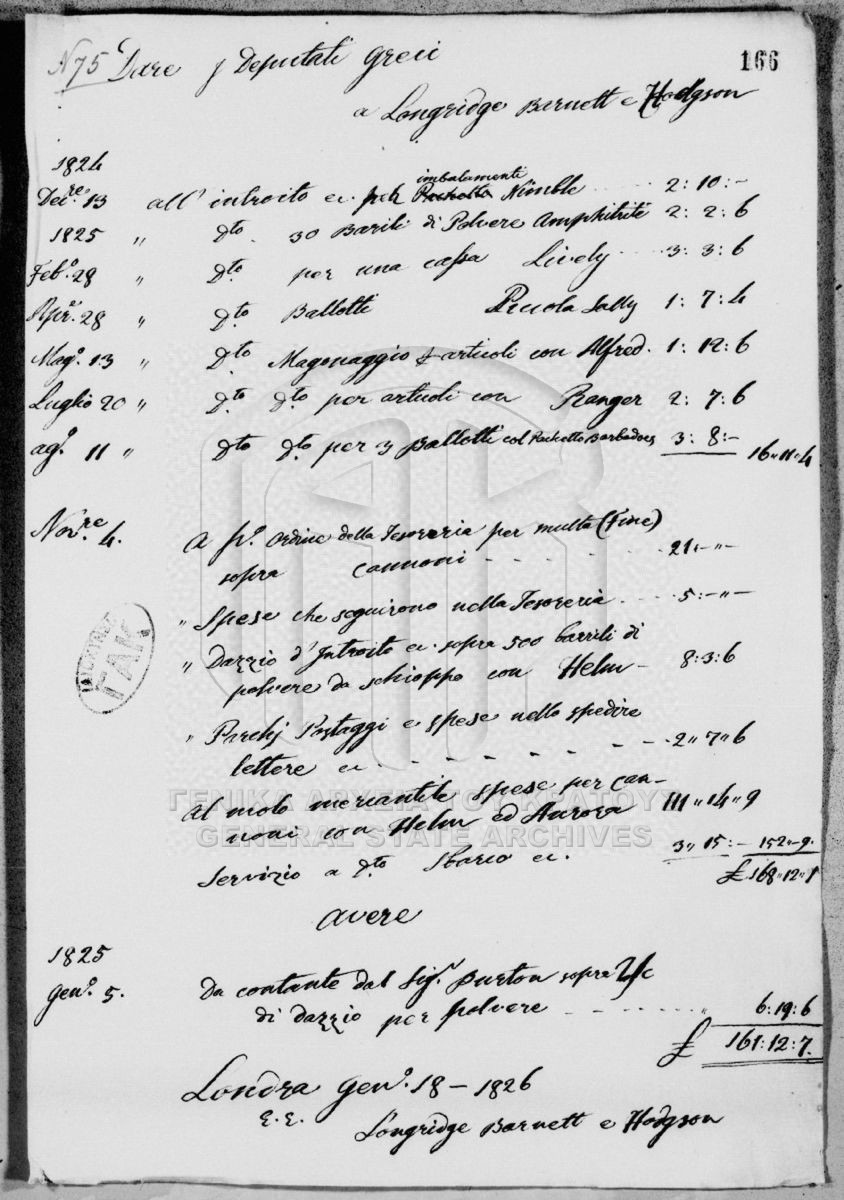 N 75 Dare i Deputati Greci
166
a Longridge Barnett e Hodgson
1824
Dec.re 13 all' introito ec. per imbalamenti Nimble 2: 10: -
1825 " Dto. 30 Barili di Polvere Amphitrite 2: 2: 6
Feb.o 28 " Dto. per una cassa Lively 3: 3: 6
Apr. 28 " Dto. Ballotti Piccola Sally 1: 7: 4
Mag.o 13 " Dto. Magonaggio & articoli con Alfred. 1: 12: 6
Luglio 20 " Dto. Dto. per articoli con Ranger 2: 7: 6
ag.o 11 " Dto. Dto. per 3 Ballotti col Pachetto Barbadoes 3: 8: - 16" 11" 4
Nov.re 4. a ordine della Tesoreria per multa (Fine)
sopra cannoni 21 " - " -
" Spese che seguirono nella Tesoreria 5: - " -
" Dazzio d'Introito ec. sopra 500 barrili di
polvere da schioppo con Helm - 8: 3: 6
" Parchj Postaggi e spese nello spedire
lettere ec. 2" 7" 6
al molo mercantile spese per can-
noni con Helm ed Aurora 111" 14" 9
Servizio a Dto. Sbarco ec. 3" 15: - 152 " - 9.
£ 168" 12" 1
avere
1825
Gen.o 5. Da contante dal Sig.r Burton sopra
di dazzio per polvere " 6: 19: 6
£ 161: 12: 7.
Londra Gen.o 18 - 1826
E. E.
Longridge Barnett e Hodgson
ΓΑΚ
ΓΕΝΙΚΑ ΑΡΧΕΙΑ ΤΟΥ ΚΡΑΤΟΥΣ
GENERAL STATE ARCHIVES